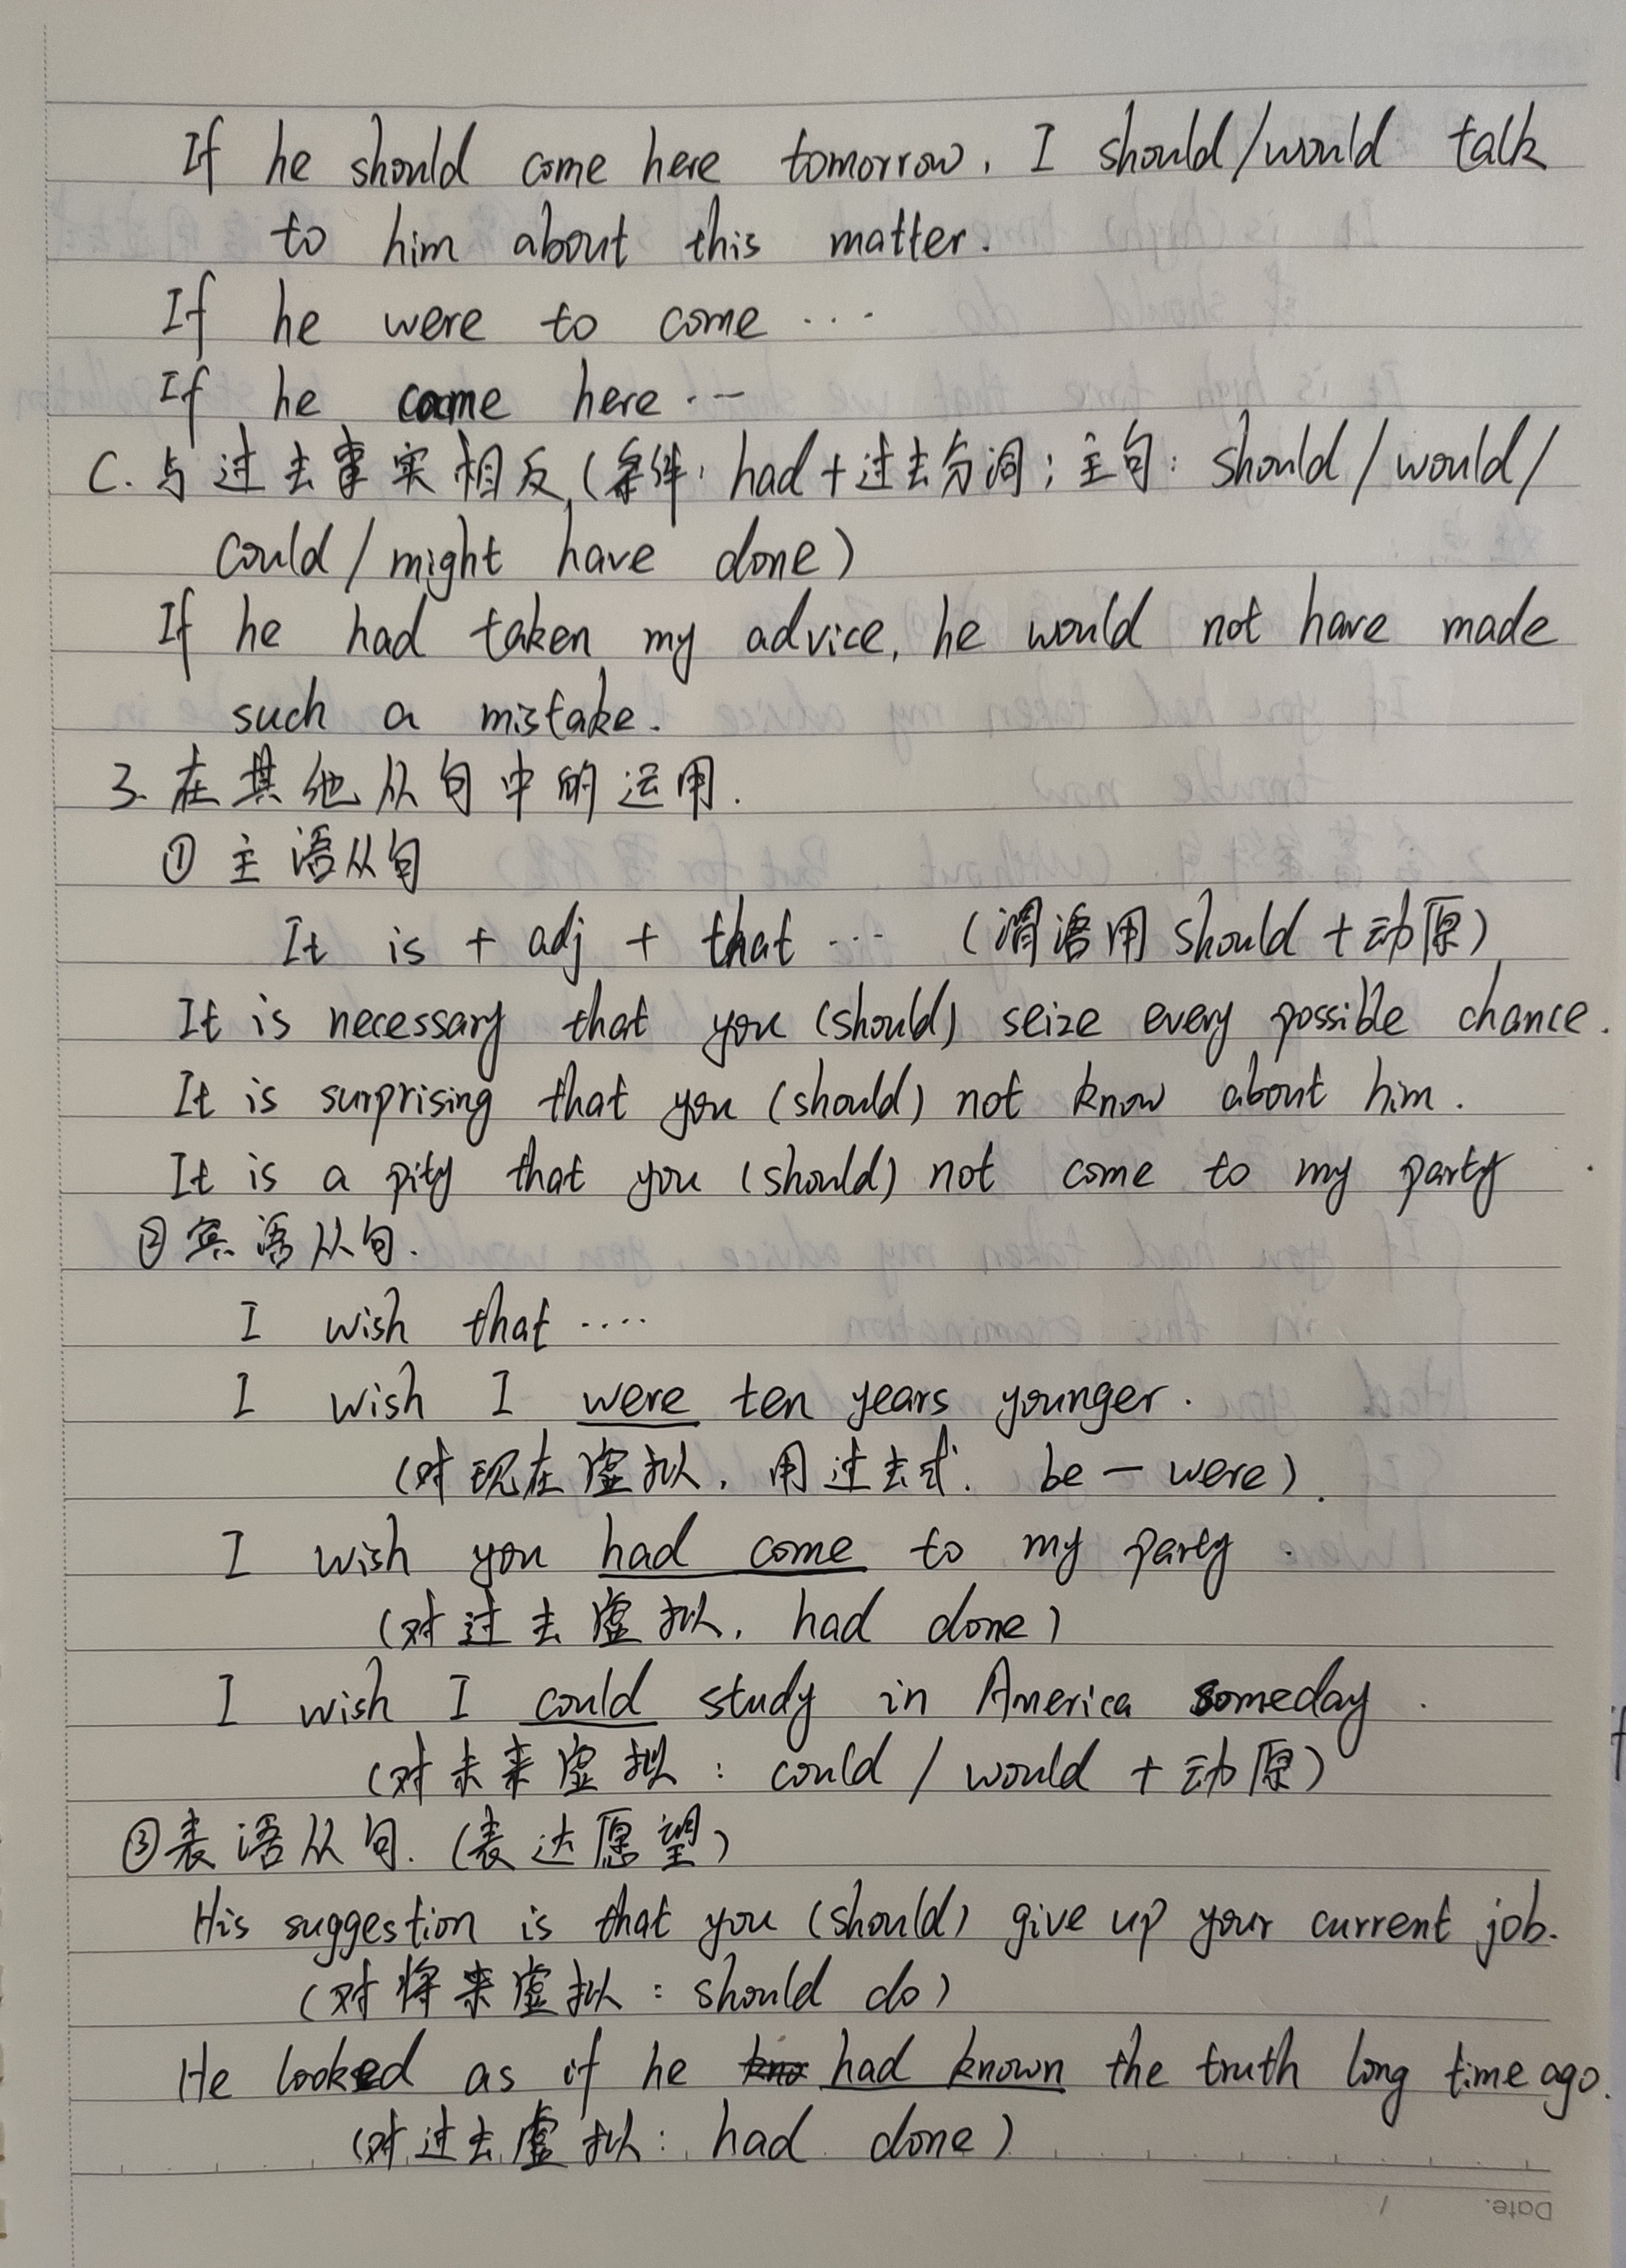 If he should come here tomorrow, I should/would talk
to him about this matter.
If he were to come ...
If he came here ...
C. 与过去事实相反 (条件: had + 过去分词; 主句: should / would /
could / might have done)
If he had taken my advice, he would not have made
such a mistake.
3. 在其他从句中的运用.
① 主语从句
It is + adj + that ... (谓语用 should + 动原)
It is necessary that you (should) seize every possible chance.
It is surprising that you (should) not know about him.
It is a pity that you (should) not come to my party.
② 宾语从句.
I wish that ....
I wish I were ten years younger.
(对现在虚拟, 用过去式. be — were).
I wish you had come to my party.
(对过去虚拟, had done)
I wish I could study in America someday.
(对未来虚拟: could / would + 动原)
③ 表语从句. (表达愿望)
His suggestion is that you (should) give up your current job.
(对将来虚拟: should do)
He looked as if he had known the truth long time ago.
(对过去虚拟: had done)
Date.